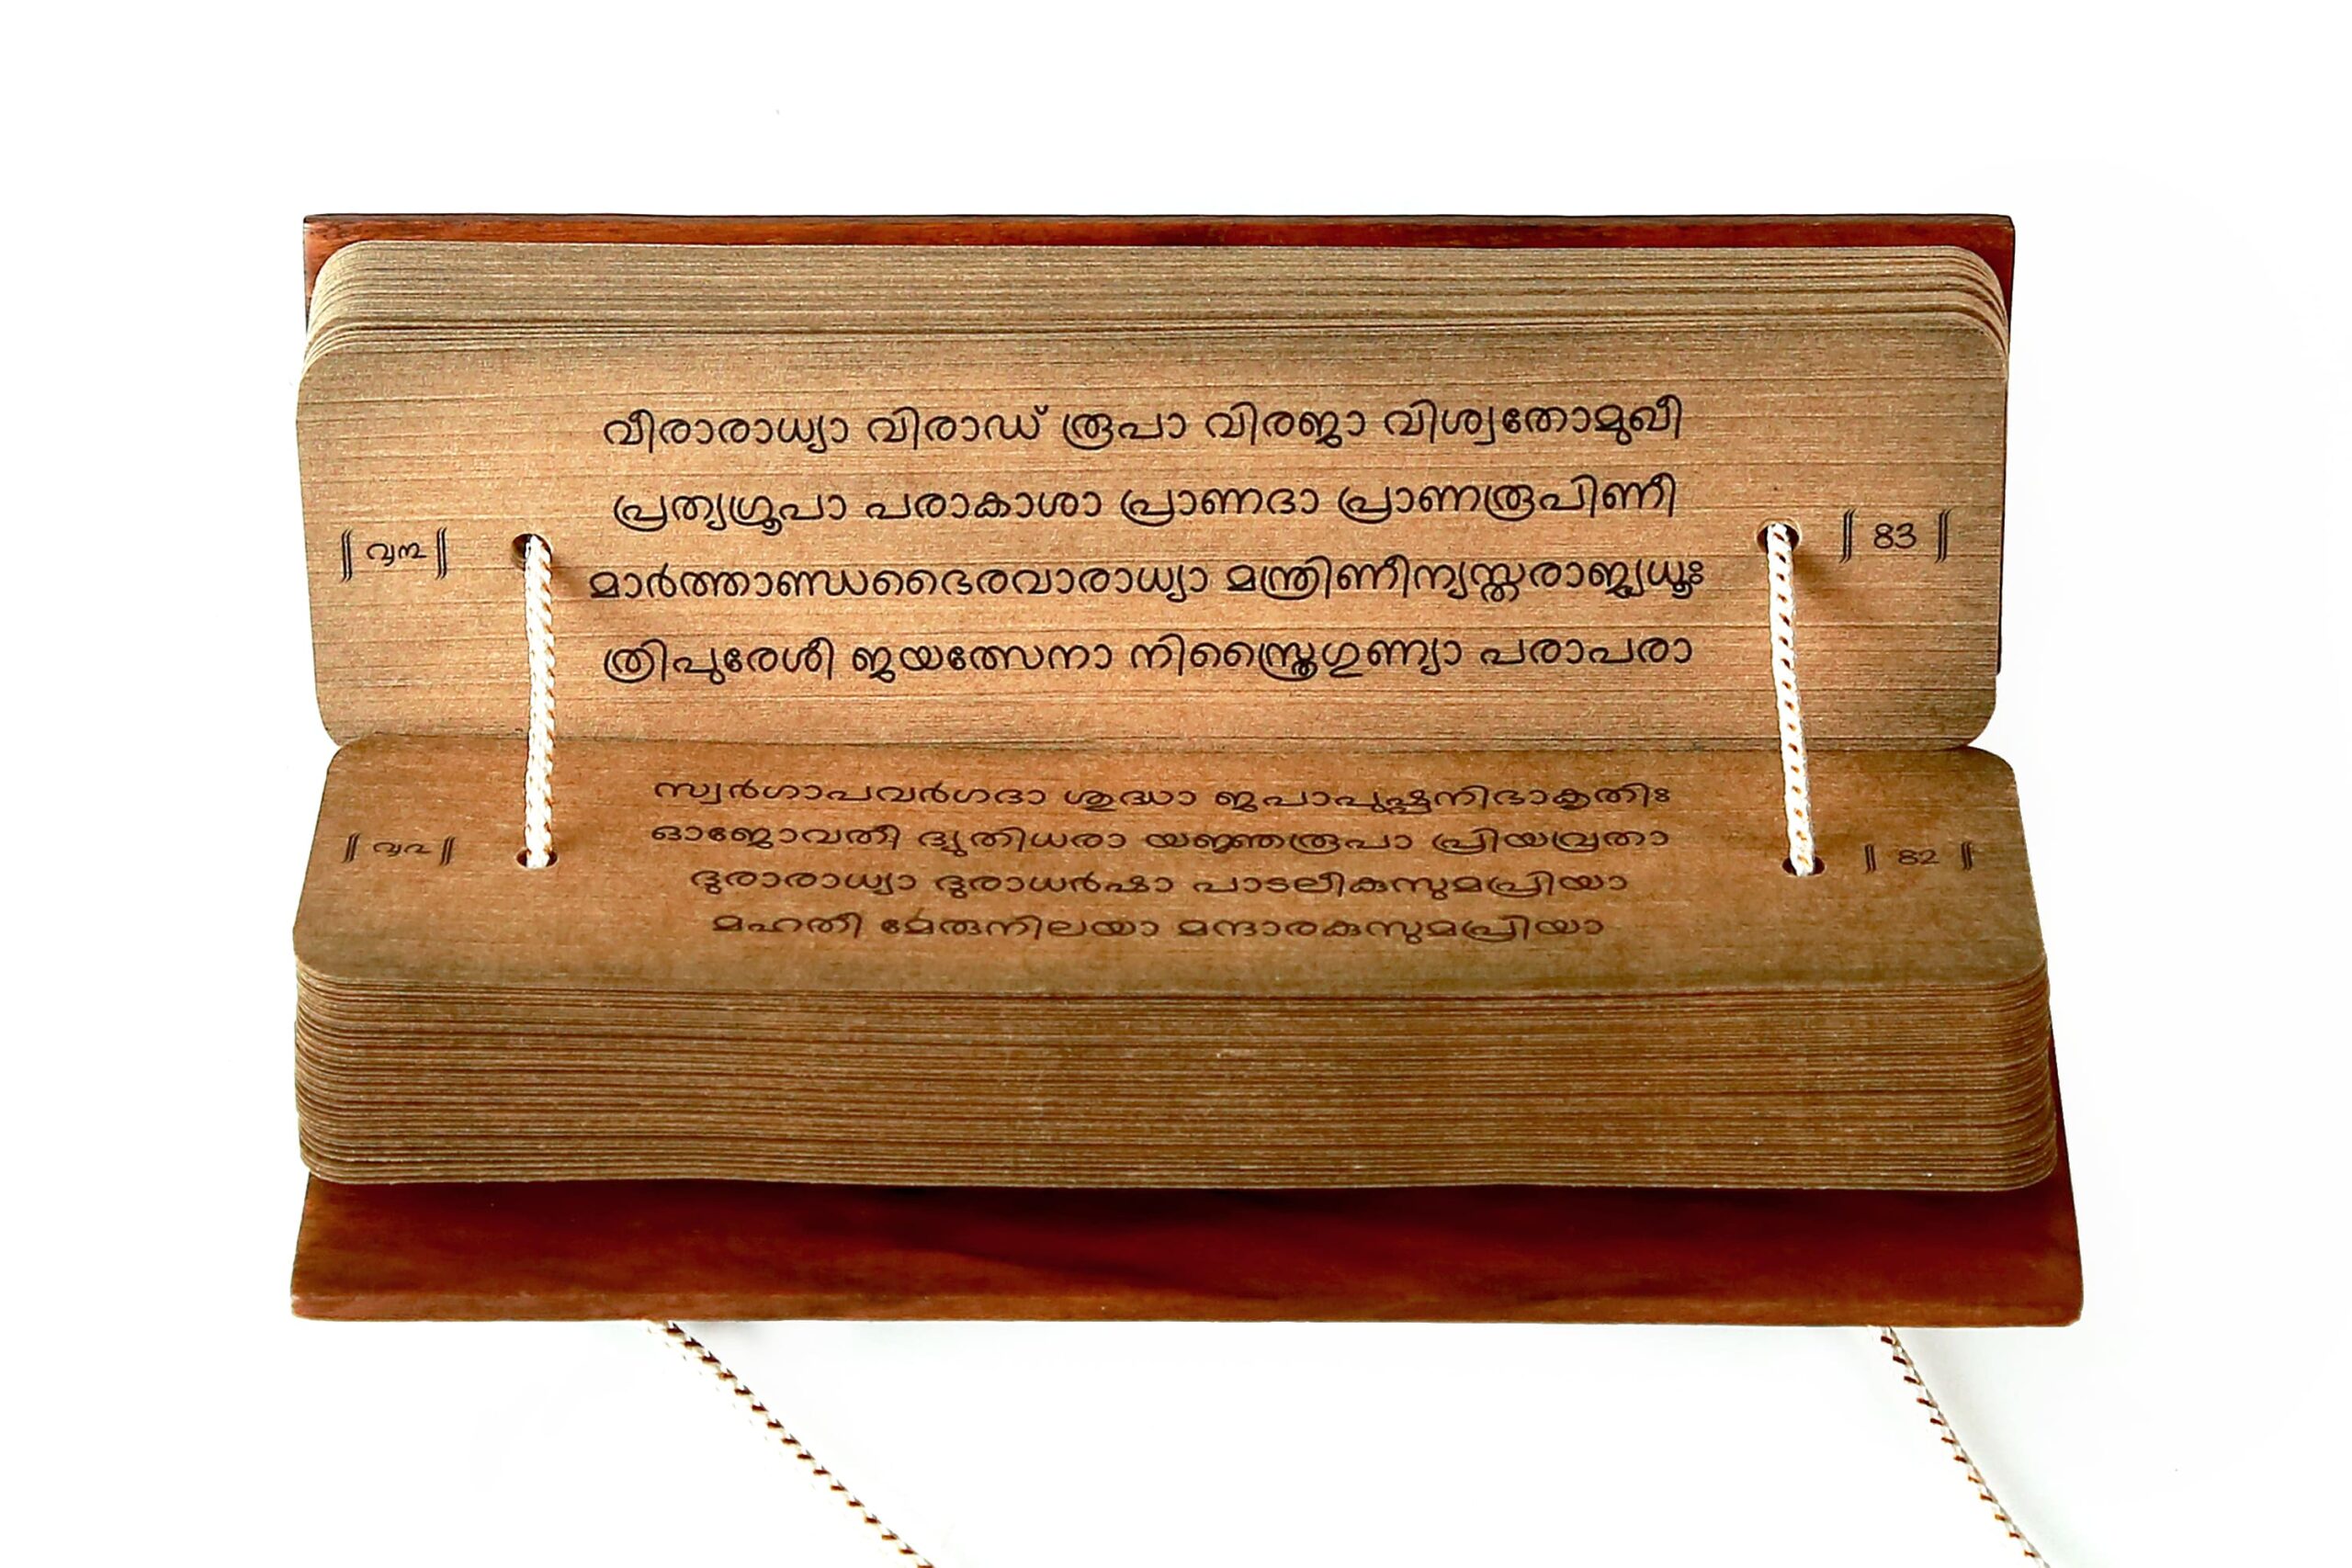 വീരാരാധ്യാ വിരാഡ് രൂപാ വിരജാ വിശ്വതോമുഖീ
പ്രത്യഗ്രൂപാ പരാകാശാ പ്രാണദാ പ്രാണരൂപിണീ
॥ ൮൩ ॥ 83 ॥
മാർത്താണ്ഡഭൈരവാരാധ്യാ മന്ത്രിണീന്യസ്തരാജ്യധൂഃ
ത്രിപുരേശീ ജയത്സേനാ നിസ്ത്രൈഗുണ്യാ പരാപരാ
സ്വർഗാപവർഗദാ ശുദ്ധാ ജപാപുഷ്പനിഭാകൃതിഃ
ഓജോവതീ ദ്യുതിധരാ യജ്ഞരൂപാ പ്രിയവ്രതാ
॥ ൮൨ ॥ 82 ॥
ദുരാരാധ്യാ ദുരാധർഷാ പാടലീകുസുമപ്രിയാ
മഹതീ മേരുനിലയാ മന്ദാരകുസുമപ്രിയാ